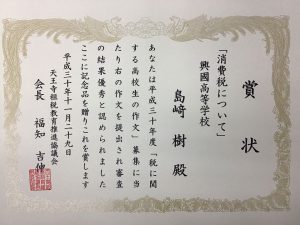 賞状
「消費税について」
興國高等学校
島﨑 樹 殿
あなたは平成三十年度「税に関
する高校生の作文」募集に当
たり右の作文を提出され審査
の結果優秀と認められました
ここに記念品を贈りこれを賞します
平成三十年十一月二十九日
天王寺租税教育推進協議会
会長 福知 吉伸